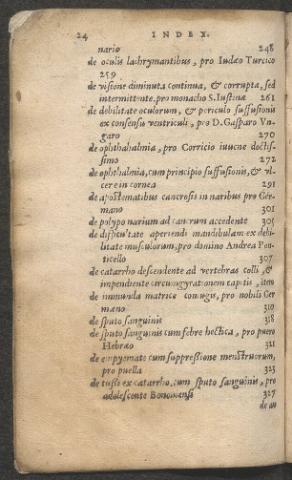 24 INDEX.
nario 248
de oculis lachrymantibus, pro Iudæo Turcico
259
de visione diminuta continua, & corrupta, sed
intermittente, pro monacho S. Iustinæ 261
de debilitate oculorum, & periculo suffusionis
ex consensu ventriculi, pro D. Gasparo Vn-
garo 270
de ophthahalmia, pro Corricio iuuene doctis-
simo 272
de ophthalmia, cum principio suffusionis, & vl-
cere in cornea 291
de apostematibus cancrosis in naribus pro Ger-
mano 301
de polypo narium ad cancrum accedente 305
de difficultate aperiendi mandibulam ex debi-
litate musculorum, pro domino Andrea Pon-
ticello 307
de catarrho descendente ad vertebras colli, &
impendiente circumgyrationem capitis, item
de immunda matrice coniugis, pro nobili Ger
mano 310
de sputo sanguinis 318
de sputo sanguinis cum febre hectica, pro puero
Hebræo 321
de empyemate cum suppressione menstruorum,
pro puella 323
de tussi ex catarrho, cum sputo sanguinis, pro
adolescente Bononiensi 327
de au